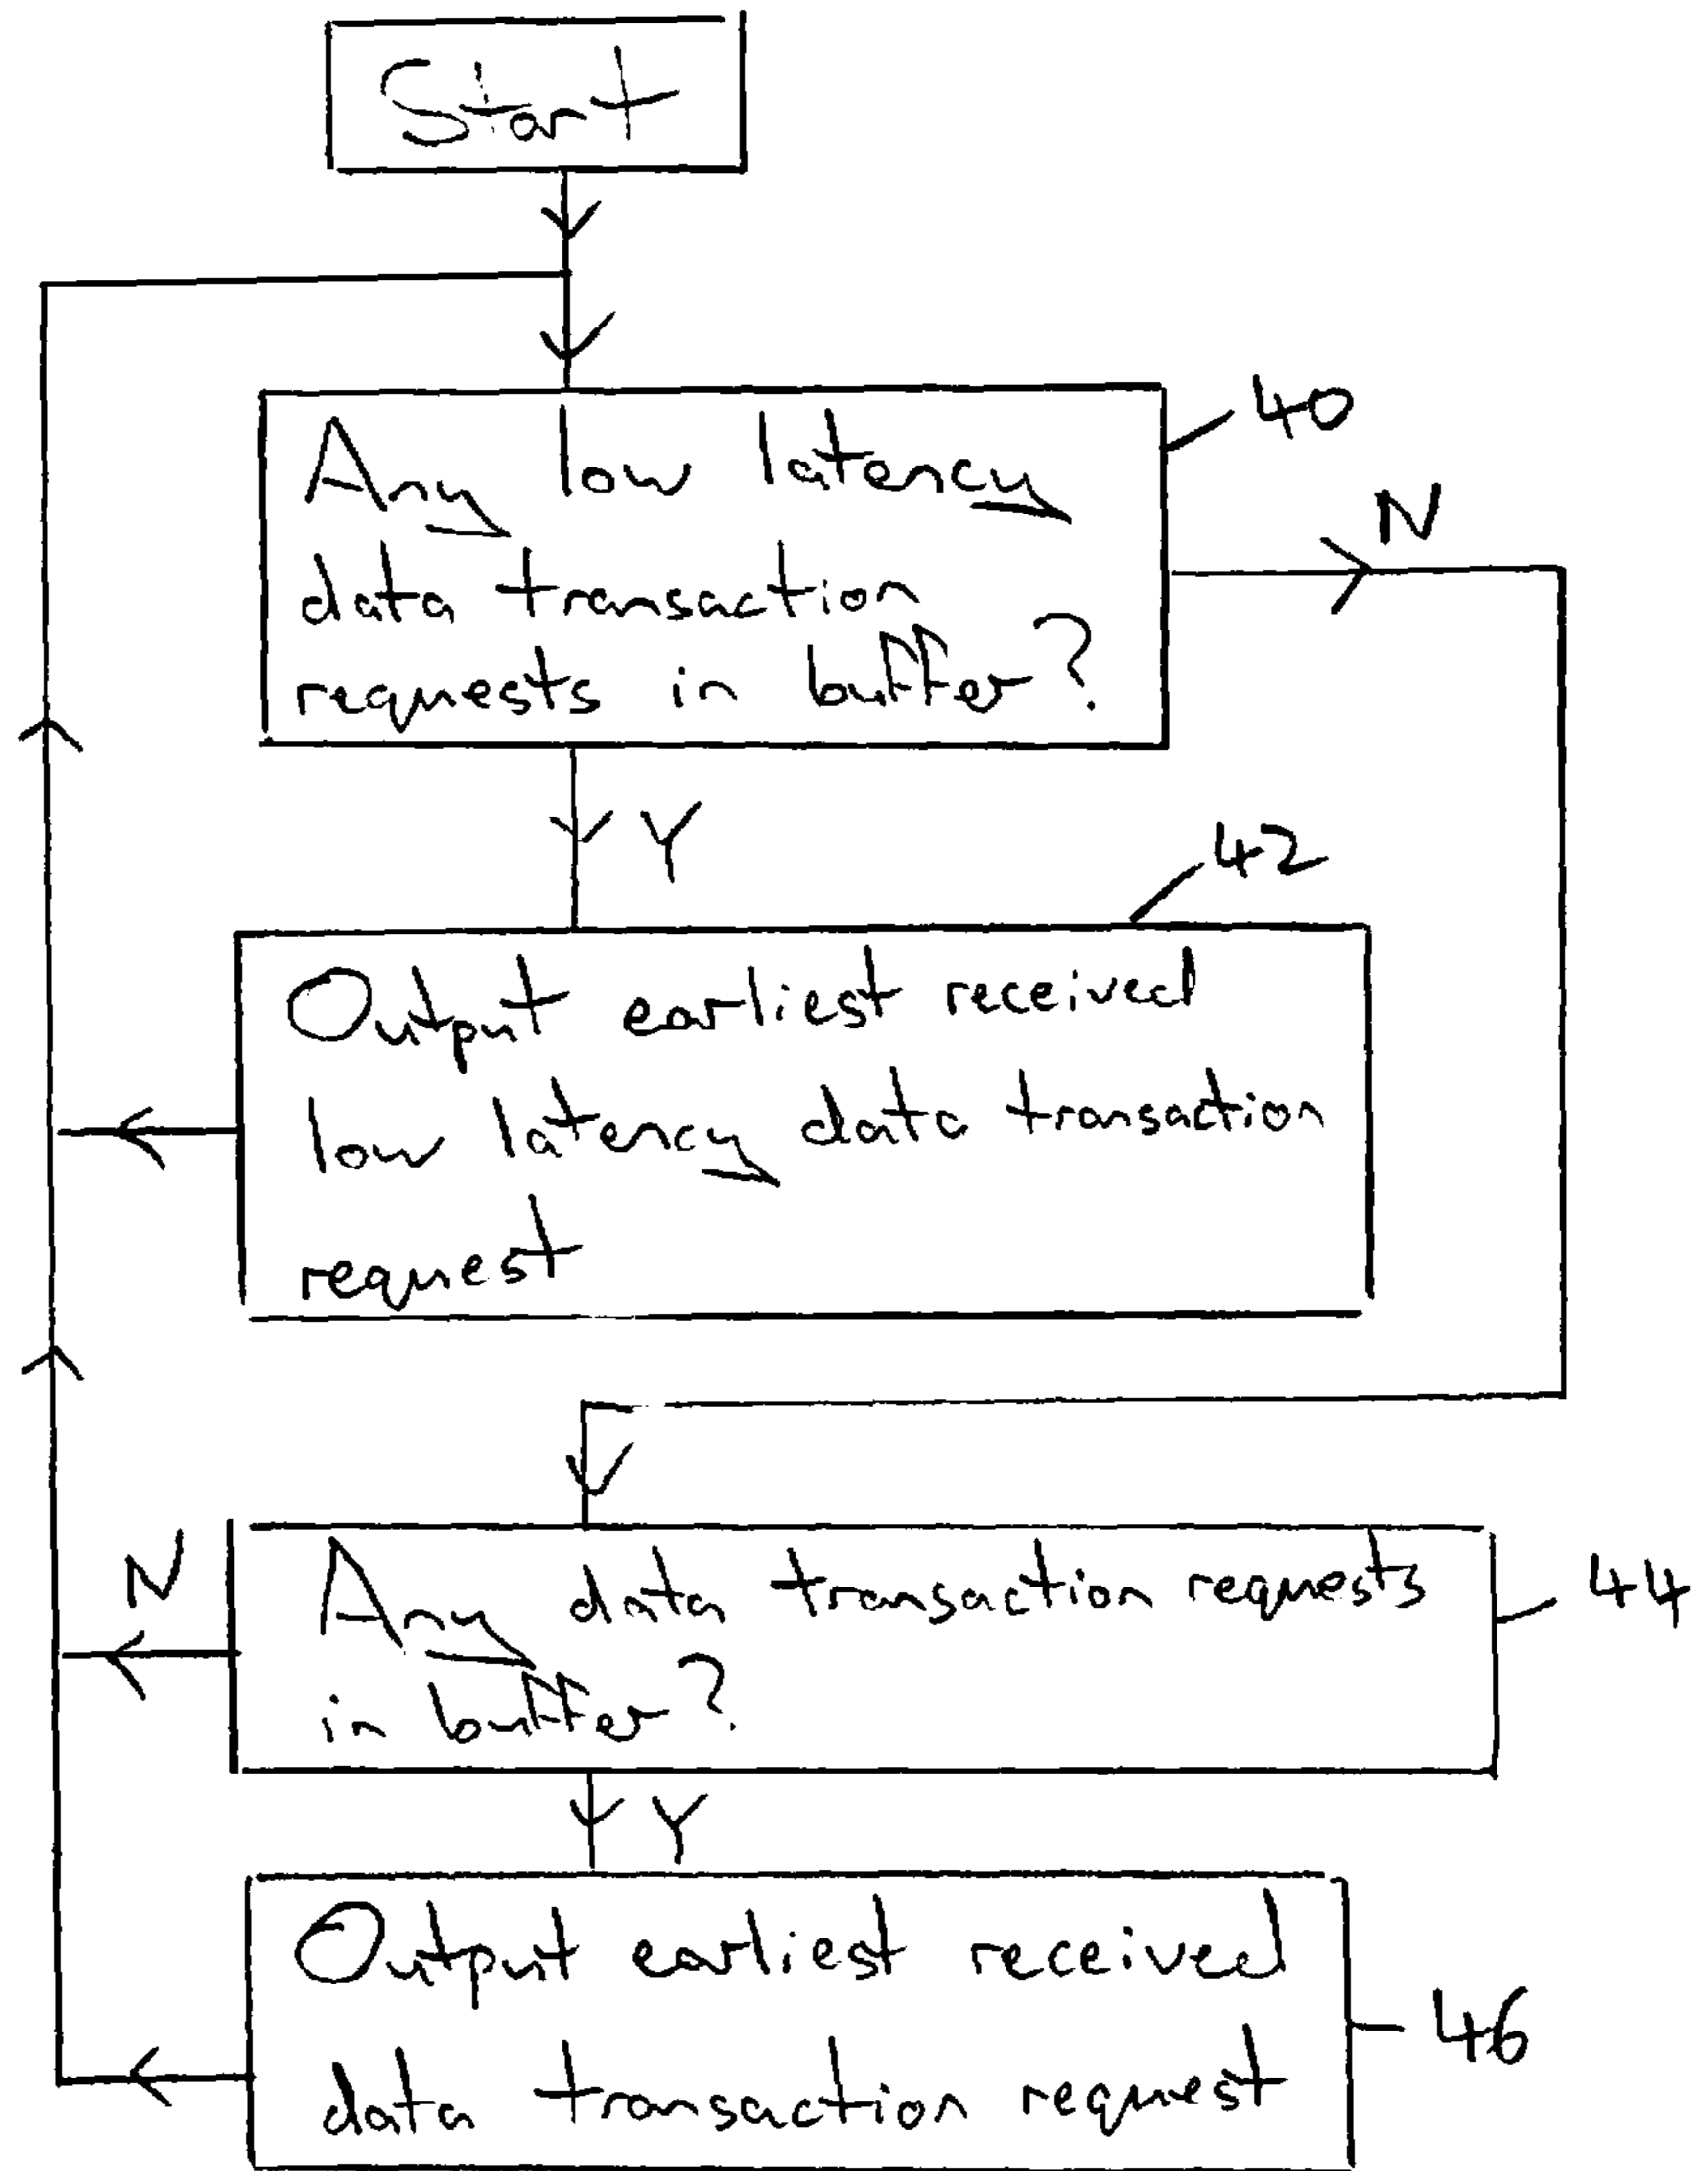 Start
40
Any low latency
data transaction
requests in buffer?
N
Y
42
Output earliest received
low latency data transaction
request
N
Any data transaction requests
in buffer?
44
Y
Output earliest received
data transaction request
46